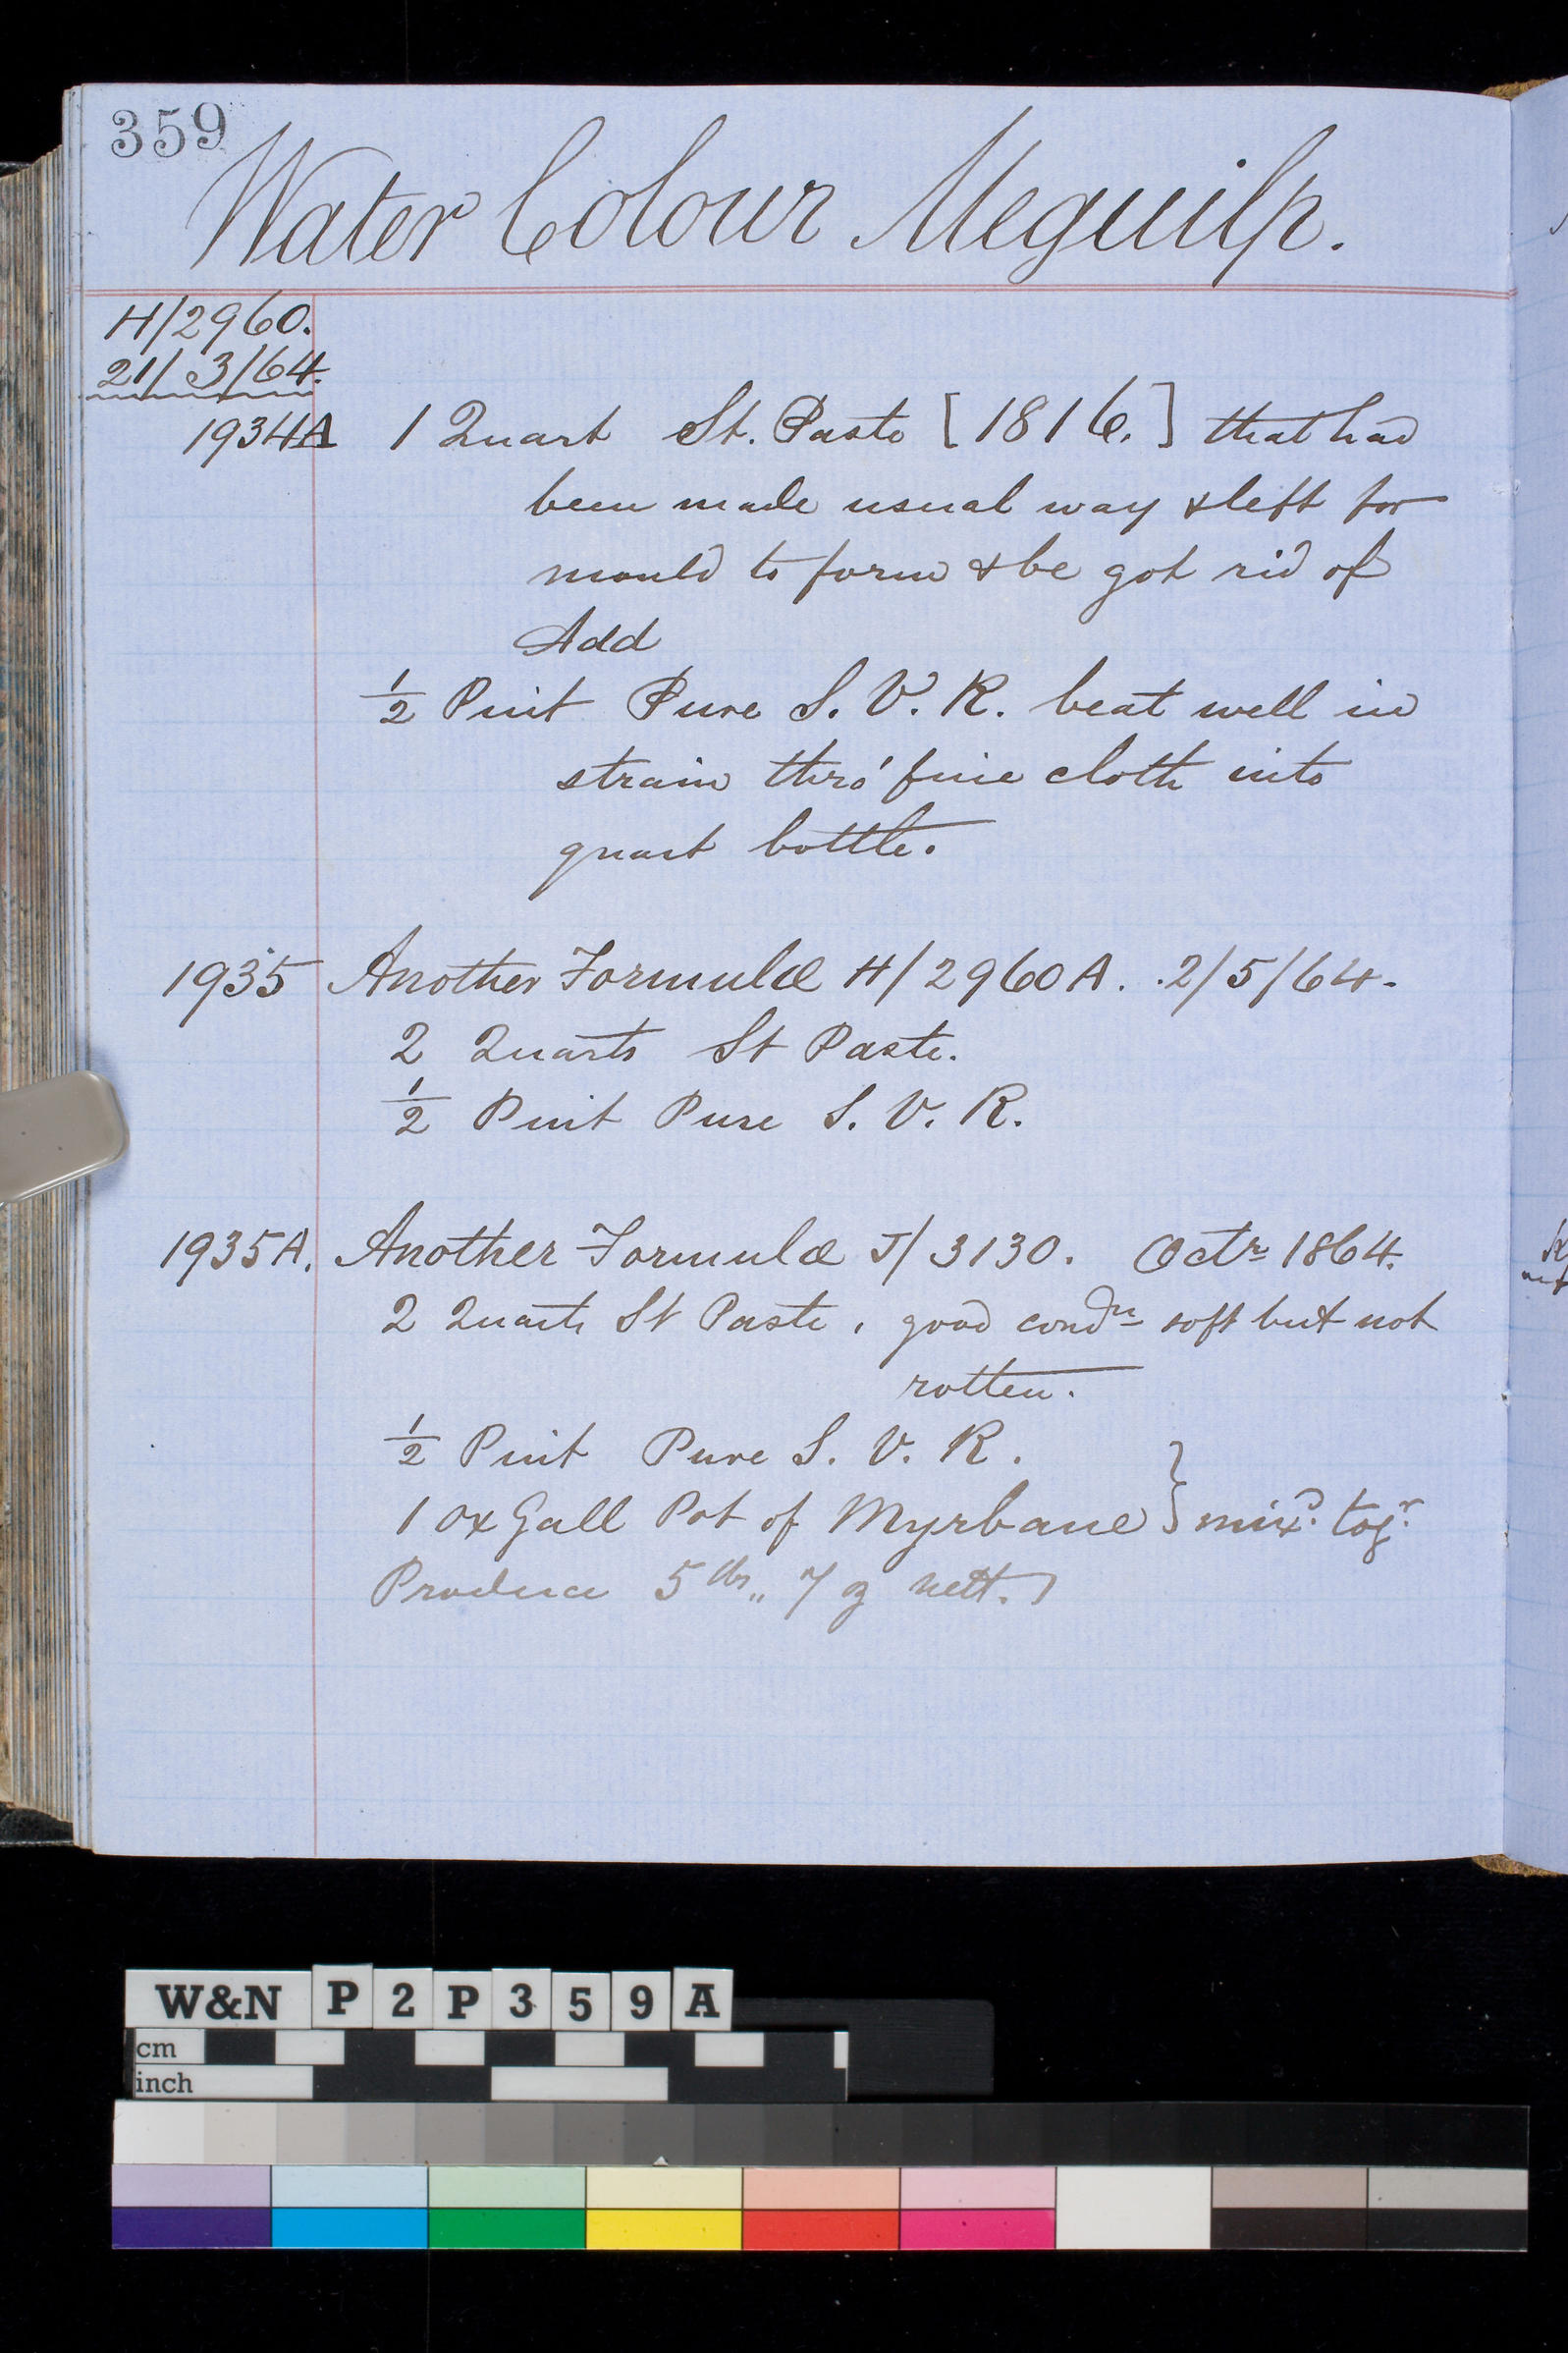 359
Water Colour Meguilp.
H/2960.
21/3/64.
1934A 1 Quart St. Paste [1816.] that had
been made usual way & left for
mould to form & be got rid of
Add
½ Pint Pure S. V. R. beat well in
strain thro' fine cloth into
quart bottle.
1935 Another Formulæ H/2960A. 2/5/64.
2 Quarts St Paste.
½ Pint Pure S. V. R.
1935A. Another Formulæ J/3130. Octr 1864.
2 Quarts St Paste, good condn soft but not
rotten.
½ Pint Pure S. V. R.
1 Ox Gall Pot of Myrbane } mixd. togr.
Produce 5 lbs,, 7 oz nett.
W&N P2P359A
cm
inch